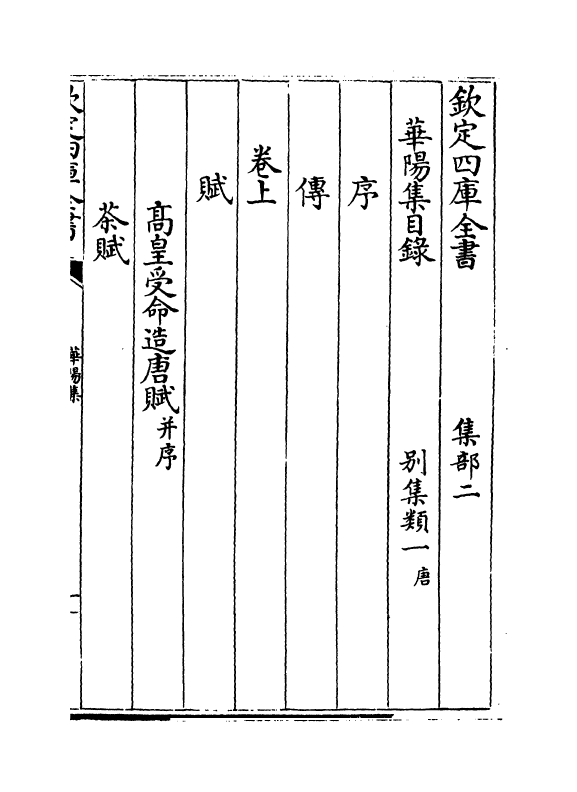 欽定四庫全書 集部二
華陽集目錄 別集類一 唐
序
傳
卷上
賦
高皇受命造唐賦 并序
茶賦
欽定四庫全書
華陽集
一